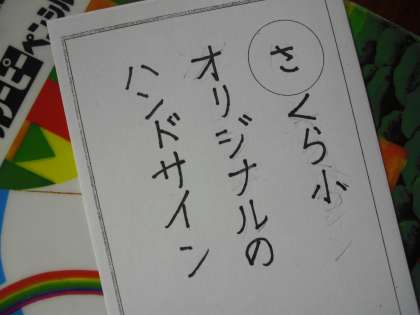 さくら小
オリジナルの
ハンドサイン
クーピーペンシル